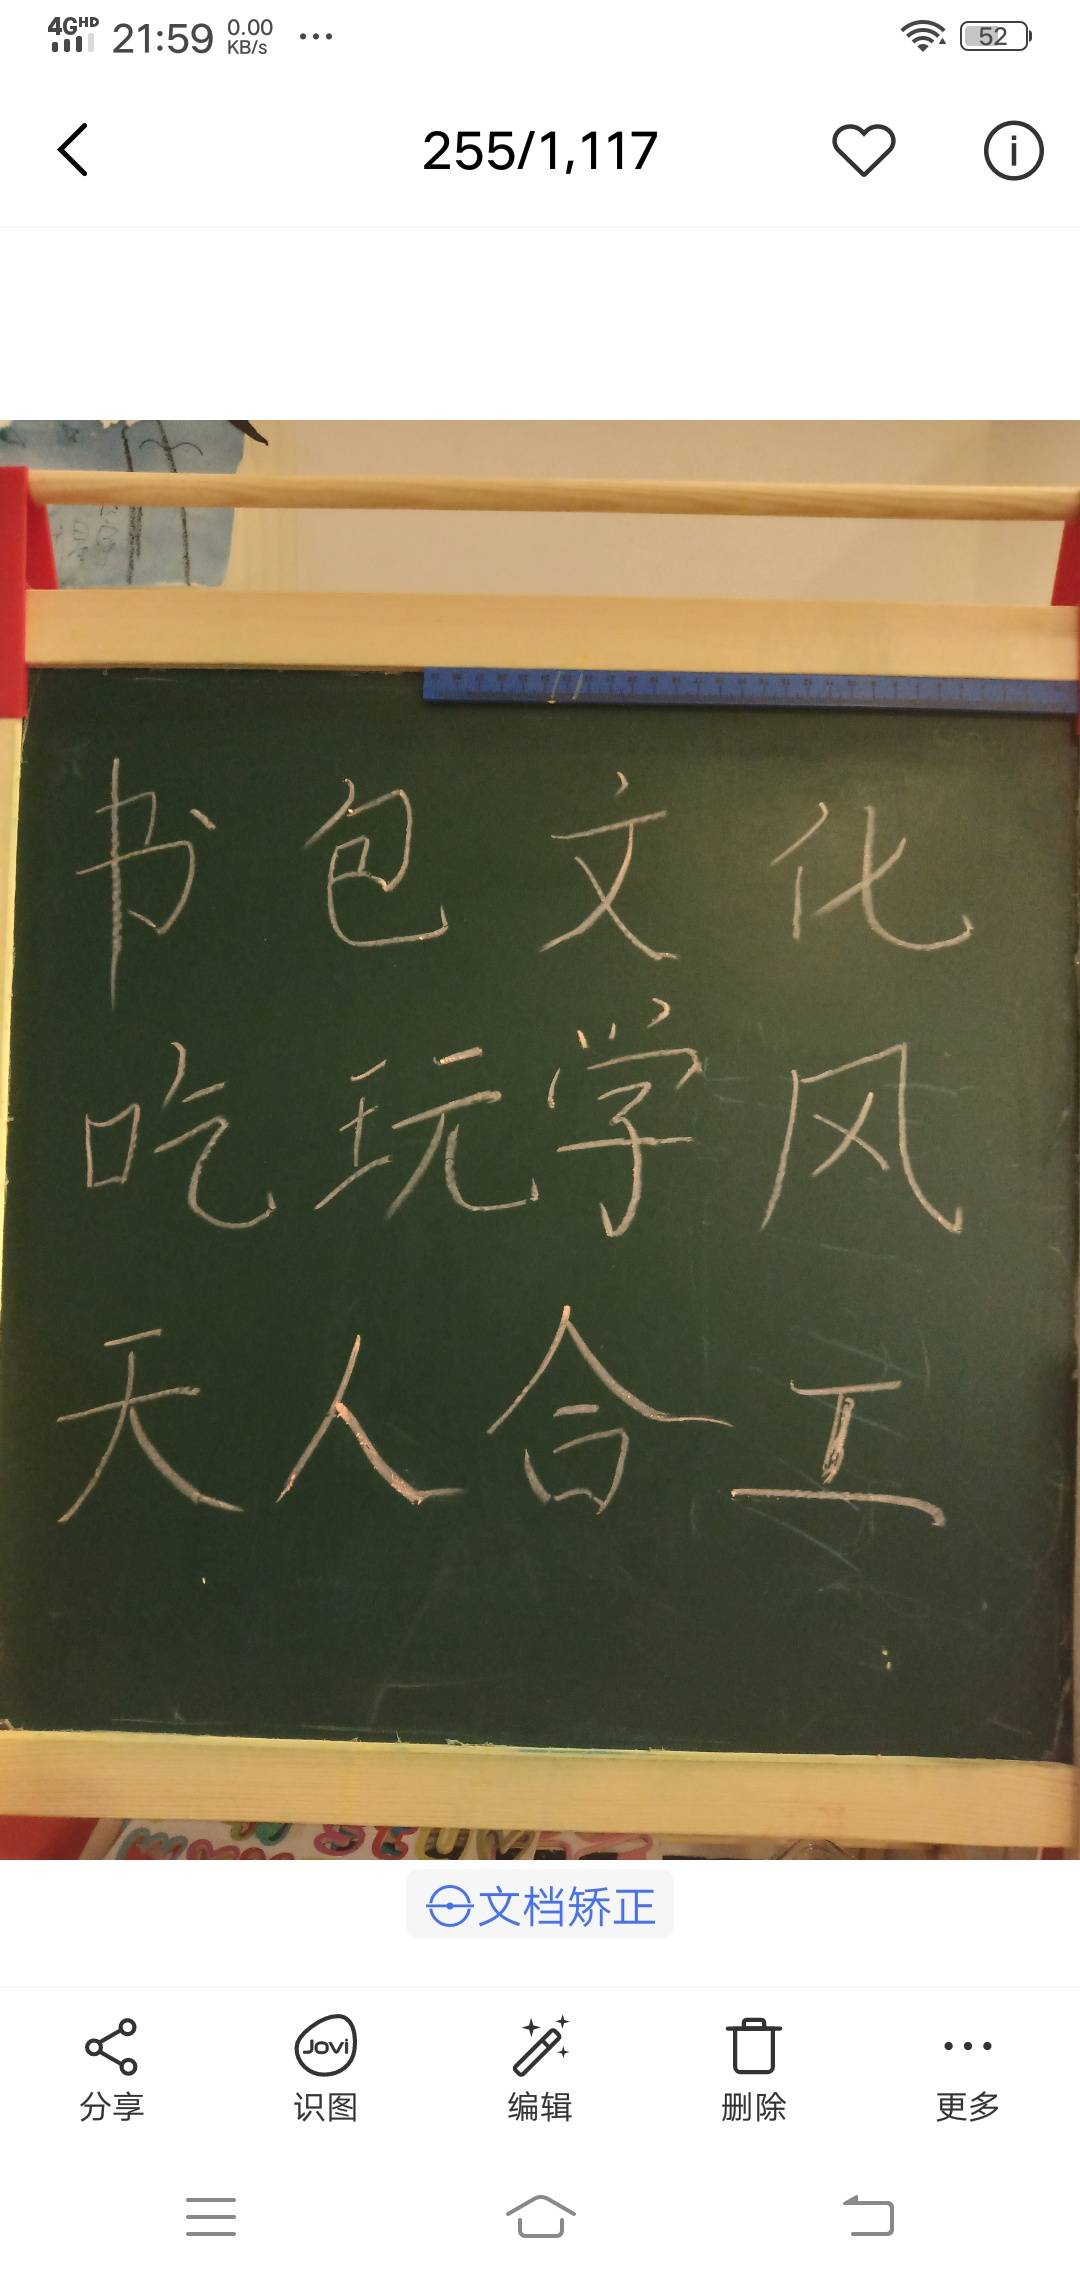 4GHD 21:59 0.00 KB/s ... 52
255/1,117
书包文化
吃玩学风
天人合工
文档矫正
分享 Jovi 识图 编辑 删除 更多